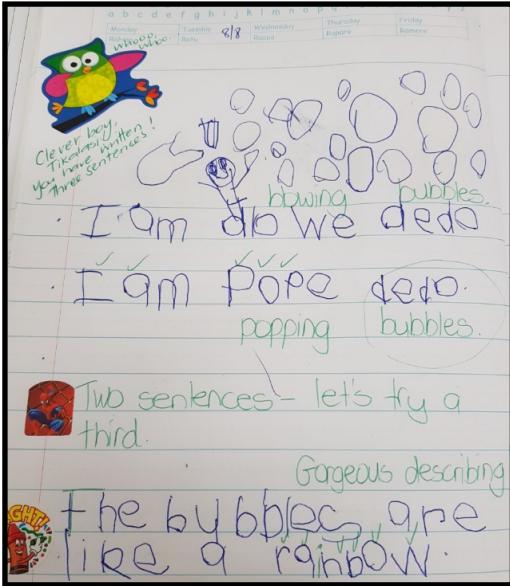 a b c d e f g h i j k l m n o p q
Monday Tuesday 8/8 Wednesday Thursday Friday
Ratu Raapa Rapare Ramere
whooo, whoo.
Clever boy,
you have written!
three sentences!
blowing bubbles.
I am do We dedo
I am Pope dedo.
popping bubbles.
Two sentences - let's try a
third.
Gorgeous describing
The bubbles are
like a rainbow.